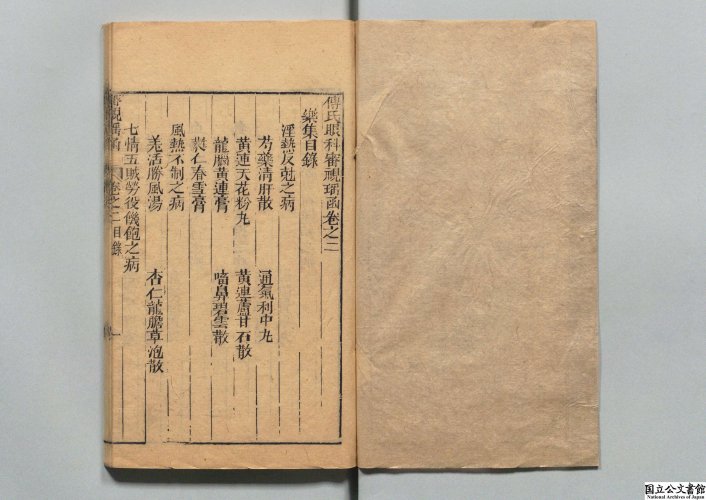 傅氏眼科審視瑤函卷之二
藥集目錄
淫熱反剋之病
芍藥清肝散 通氣利中丸
黃連天花粉丸 黃連爐甘石散
龍膽黃連膏 㗜鼻碧雲散
蕤仁春雪膏
風熱不制之病
羌活勝風湯 杏仁龍膽草泡散
七情五賊勞役饑飽之病
審視瑤函 卷之二目錄 一
国立公文書館
National Archives of Japan